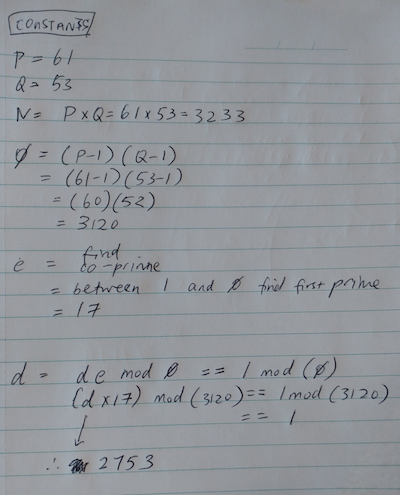 CONSTANTS
P = 61
Q = 53
N = P x Q = 61 x 53 = 3233
Ø = (P-1) (Q-1)
= (61-1) (53-1)
= (60) (52)
= 3120
e = find co-prime
= between 1 and Ø find first prime
= 17
d = d e mod Ø == 1 mod (Ø)
(d x 17) mod (3120) == 1 mod (3120)
== 1
↓
∴ 2753